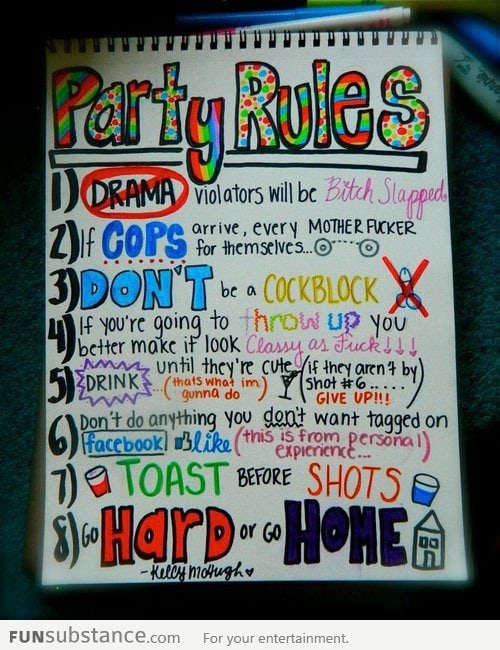 Party Rules
1) DRAMA violators will be Bitch Slapped
2) If COPS arrive, every MOTHER FUCKER
for themselves...
3) DON'T be a COCKBLOCK
4) If you're going to throw up you
better make it look Classy as Fuck↓↓↓
5) DRINK until they're cute (if they aren't by
...(thats what im gunna do) shot #6.....
GIVE UP!!!)
6) Don't do anything you don't want tagged on
facebook like (this is from personal
expierience...)
7) TOAST BEFORE SHOTS
8) GO HARD or GO HOME
-Kelly McHugh
FUNsubstance.com For your entertainment.